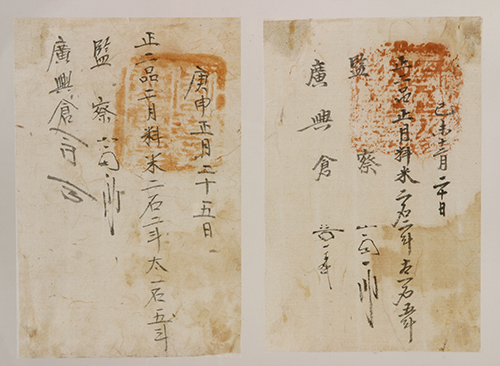 己未十二月二十日
正一品正月料米二石二斗太一石五斗
監察
廣興倉
庚申正月二十五日
正一品二月料米二石二斗太一石五斗
監察
廣興倉